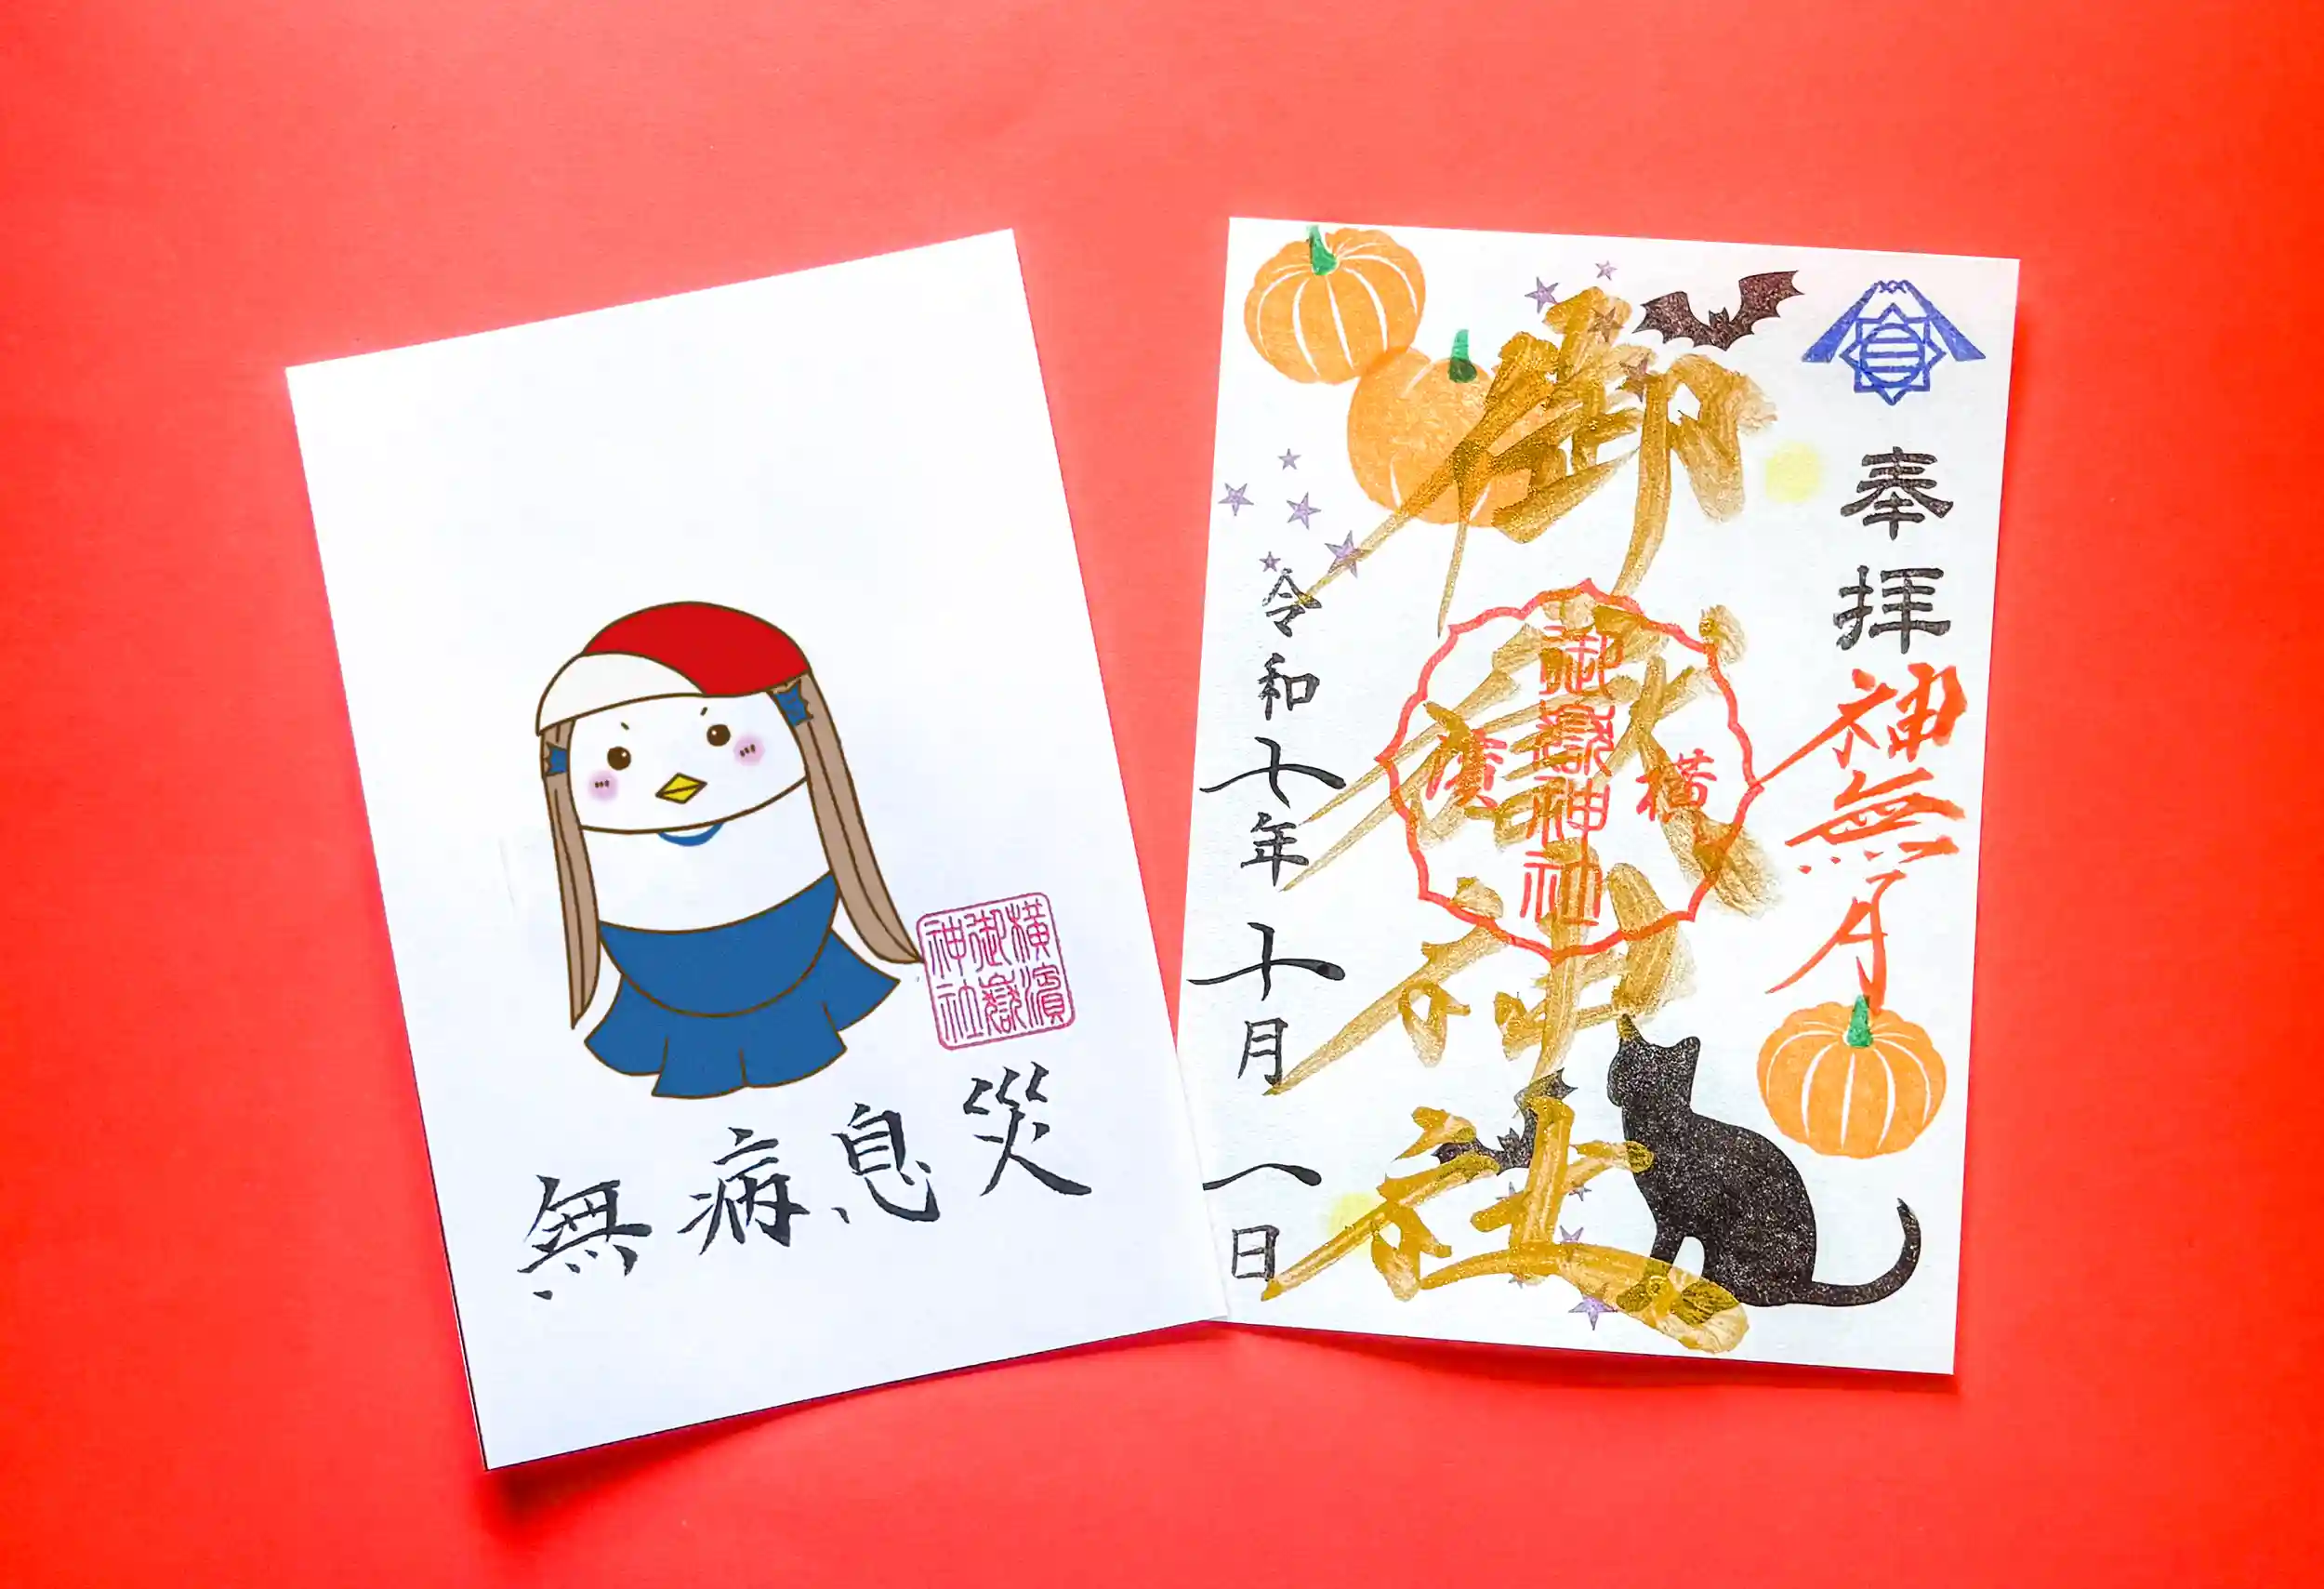 無病息災
横濱
御嶽
神社
奉拝
神無月
御嶽神社
横濱
御嶽神社
令和七年十月一日